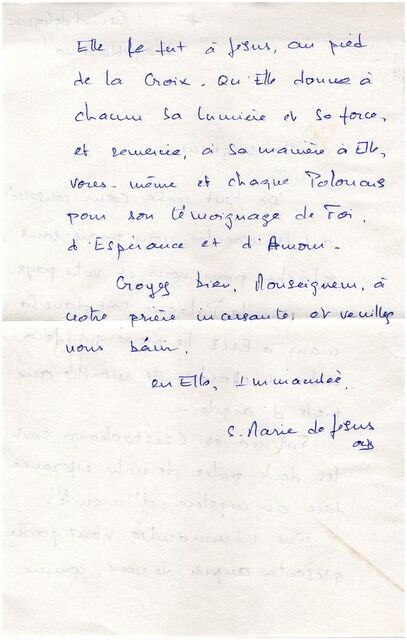 Elle le fut à Jésus, au pied
de la Croix. Qu'Elle donne à
chacun sa lumière et sa force,
et remercie, à sa manière à Elle,
vous-même et chaque Polonais
pour son témoignage de Foi,
d'Espérance et d'Amour.
Croyez bien, Monseigneur, à
notre prière incessante, et veuillez
nous bénir.
en Elle, Immaculée.
S. Marie de Jésus